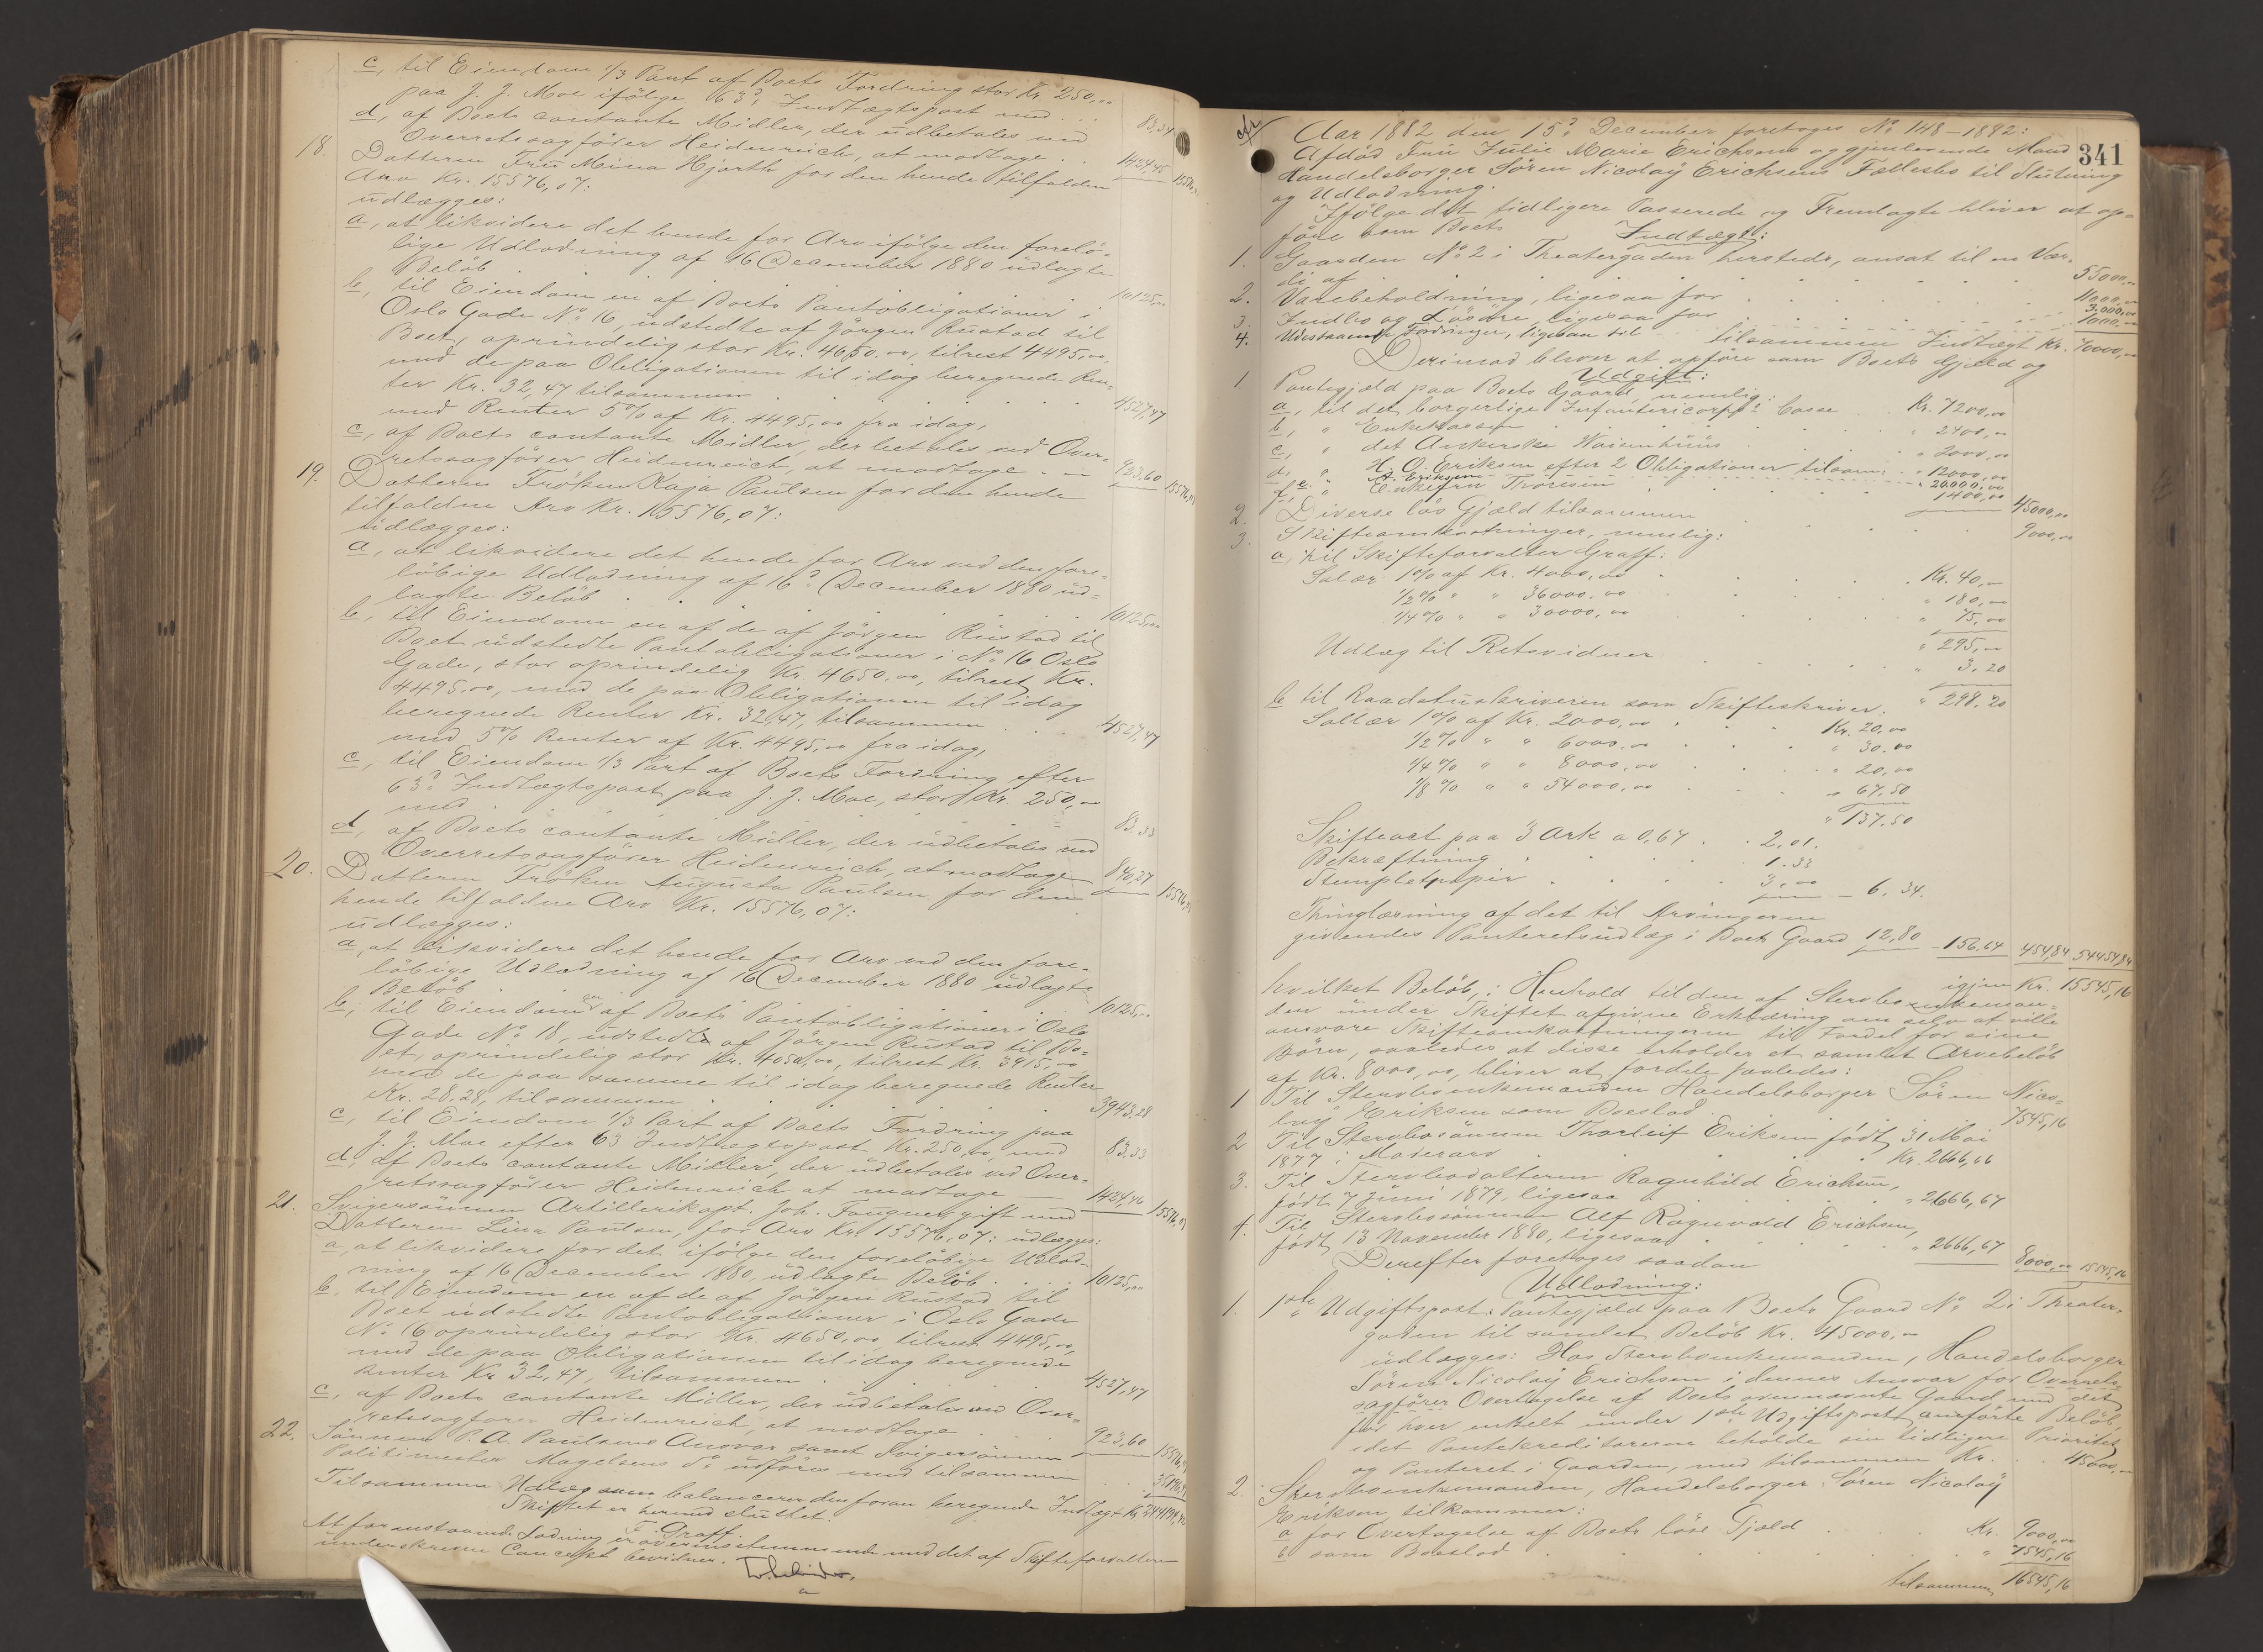 c, til Eiendom 1/3 Part af Boets Fordring stor Kr. 250,00
paa J. J. Moe ifölge 63de Indtægtspost med . . . 83,34
d, af Boets contante Midler, der udbetales ved
Overretssagförer Heidenreich, at modtage . . 1424,45 15576,07
18. Datteren Fru Mina Hjorth for den hende tilfaldne
Arv Kr. 15576,07:
udlægges:
a, at likvidere det hende for Arv ifölge den forelö-
bige Udlodning af 16 December 1880 udlagte
Belöb . . . 10125,00
b, til Eiendom en af Boets Pantobligationer i
Oslo Gade No 16, udstedte af Jörgen Rustad til
Boet, oprindelig stor Kr. 4650.00, tilrest 4495,00,
med de paa Obligationen til idag beregnede Ren-
ter Kr. 32,47 tilsammen . . . 4527,47
med Renter 5% af Kr. 4495,00 fra idag,
c, af Boets contante Midler, der betales ved Over-
retssagförer Heidenreich, at modtage . — 923,60 15576,07
19. Datteren Fröken Kaja Paulsen for den hende
tilfaldne Arv Kr. 15576,07:
udlægges:
a, at likvidere det hende for Arv ved den fore-
löbige Udlodning af 16de December 1880 ud-
lagte Belöb . . . 10125,00
b, til Eiendom en af de af Jörgen Rustad til
Boet udstedte Pantobligationer i No 16 Oslo
Gade, stor oprindelig Kr. 4650.00, tilrest Kr.
4495.00, med de paa Obligationen til idag
beregnede Renter Kr. 32,47, tilsammen . . . 4527,47
med 5% Renter af Kr. 4495,00 fra idag,
c, til Eiendom 1/3 Part af Boets Fordring efter
63de Indtægtspost paa J. J. Moe, stor Kr. 250,00
med . . . 83,33
d, af Boets contante Midler, der udbetales ved
Overretssagförer Heidenreich, at modtage 840,27 15576,07
20. Datteren Fröken Augusta Paulsen for den
hende tilfaldne Arv Kr. 15576,07:
udlægges:
a, at likvidere det hende for Arv ved den fore-
löbige Udlodning af 16 December 1880 udlagte
Belöb . . . 10125,00
b, til Eiendom en af Boets Pantobligationer i Oslo
Gade No 18, udstedte af Jörgen Rustad til Bo-
et, oprindelig stor Kr. 4050,00, tilrest Kr. 3915,00
med de paa samme til idag beregnede Renter
Kr. 28,28, tilsammen . . . 3943,28
c, til Eiendom 1/3 Part af Boets Fordring paa
J. J. Moe efter 63 Indtægtspost Kr. 250,00, med 83,33
d, af Boets contante Midler, der udbetales ved Over-
retssagförer Heidenreich at modtage — 1424,46 15576,07
21. Svigersönnen Artillerikapt. Joh. Fougner gift med
Datteren Lina Paulsen, for Arv Kr. 15576,07: udlægges:
a, at likvidere for det ifölge den forelöbige Udlod-
ning af 16 December 1880, udlagte Belöb . . . 10125,00
b, til Eiendom en af de af Jörgen Rustad til
Boet udstedte Pantobligationer i Oslo Gade
No 16 oprindelig stor Kr. 4650,00, tilrest 4495,00,
med de paa Obligationen til idag beregnede
Renter Kr. 32,47, tilsammen . . . 4527,47
c, af Boets contante Midler, der udbetales ved Over-
retssagförer Heidenreich, at modtage . . 923,60 15576,07
22. Sönnen P. A. Paulsens Ansvar samt Svigersönnen
Politimester Magelsens do udföres med tilsammen
Tilsammen Udlæg som balancerer den foran beregnede Indtægt Kr.
Skiftet er hermed sluttet.
F. Graff.
At foranstaaende Lodning er overensstemmende med det af Skifteforvalteren
underskrevne Concept bevidner.
341
cfr
Aar 1882 den 15de December foretoges No 148-1882:
Afdöd Fru Julie Marie Erichsens og gjenlevende Mand
Handelsborger Sören Nicolaÿ Erichsens Fællesbo til Slutning
og Udlodning.
Ifölge det tidligere Passerede og Fremlagte bliver at op-
före som Boets Indtægt:
1. Gaarden No 2 i Theatergaden hersteds, ansat til en Vær-
di af . . . 55000,00
2. Varebeholdning, ligesaa for . . . 11000,00
3. Indbo og Lösöre, ligesaa for . . . 3.000,00
4. Udestaaende Fordringer, ligesaa til . . . 1000,00
tilsammen Indtægt Kr. 70000,00
Derimod bliver at opföre som Boets Gjeld og
Udgift:
1. Pantegjeld paa Boets Gaard, nemlig:
a, til det borgerlige Infantericorps's Casse . . Kr. 7200,00
b, " Enkekassen . . . " 2400,00
c, " det Ankerske Waisenhuus . . . " 2000,00
d, " H. O. Eriksen efter 2 Obligationer tilsam: . " 12000,00
e. " A. Eriksen . . . " 20.000,00
f, " Enkefru Thoresen . . . " 1400,00 45000,00
2. Diverse lös Gjæld tilsammen . . . 9000,00
3. Skifteomkostninger, nemlig:
a, til Skifteforvalter Graff:
Salær 1% af Kr. 4000,00 . . . Kr. 40,00
1/2% " " 36000,00 . . . " 180,00
1/4% " " 30000,00 . . . " 75,00
" 295,00
Udlæg til Retsvidner . . . " 3.20
" 298.20
b, til Raadstuskriveren som Skifteskriver.
Sallær 1% af Kr. 2000,00 . . . Kr. 20,00
1/2% " " 6000,00 . . . " 30.00
1/4% " " 8000,00 . . . " 20,00
1/8% " " 54000,00 . . . " 67.50
" 137.50
Skifteact paa 3 Ark a 0,67 . . 2,01.
Bekræftning . . . 1.33
Stempletpapir . . . 3,00 — 6.34.
Thinglæsning af det til Arvingerne
givendes Panteretsudlæg i Boets Gaard 12,80 - 156.64 454,84 54454,84
igjen Kr. 15545,16
hvilket Belöb, i Henhold til den af Stervboenkeman-
den under Skiftet afgivne Erklæring om selv at ville
ansvare Skifteomkostningerne til Fordel for sine
Börn, saaledes at disse erholder et samlet Arvebelöb
af Kr. 8000,00, bliver at fordele saaledes:
1 Til Stervboenkemanden Handelsborger Sören Nico-
laÿ Eriksen som Boeslod . . . 7545,16
2 Til Stervbosönnen Thorleif Eriksen födt 31 Mai
1877 i Moderarv . . . Kr. 2666,66
3. Til Stervbodatteren Ragnhild Erichsen,
födt 7 Juni 1879, ligesaa . . . " 2666,67
4. Til Stervbosönnen Alf Ragnvald Erichsen,
födt 13 November 1880, ligesaa . . . " 2666,67 8000,00 15545,16
Derefter foretoges saadan
Udlodning:
1. 1ste Udgiftspost: Pantegjæld paa Boets Gaard No 2 i Theater-
gaden til samlet Belöb Kr. 45000,00
udlægges: Hos Stervboenkemanden, Handelsborger
Sören Nicolaÿ Erichsen i dennes Ansvar for Overrets-
sagförer Overtagelse af Boets ovennævnte Gaard med det
for hver enkelt under 1ste Udgiftspost anförte Belöb,
idet Pantekreditorerne beholde sin tidligere Prioritet
og Panteret i Gaarden, med tilsammen Kr. . . 45000,00
2. Stervboenkemanden, Handelsborger Sören Nicolaÿ
Eriksen tilkommer:
a for Overtagelse af Boets löse Gjæld . . . Kr. 9000,00
b som Boeslod . . . " 7545,16
tilsammen 16545,16